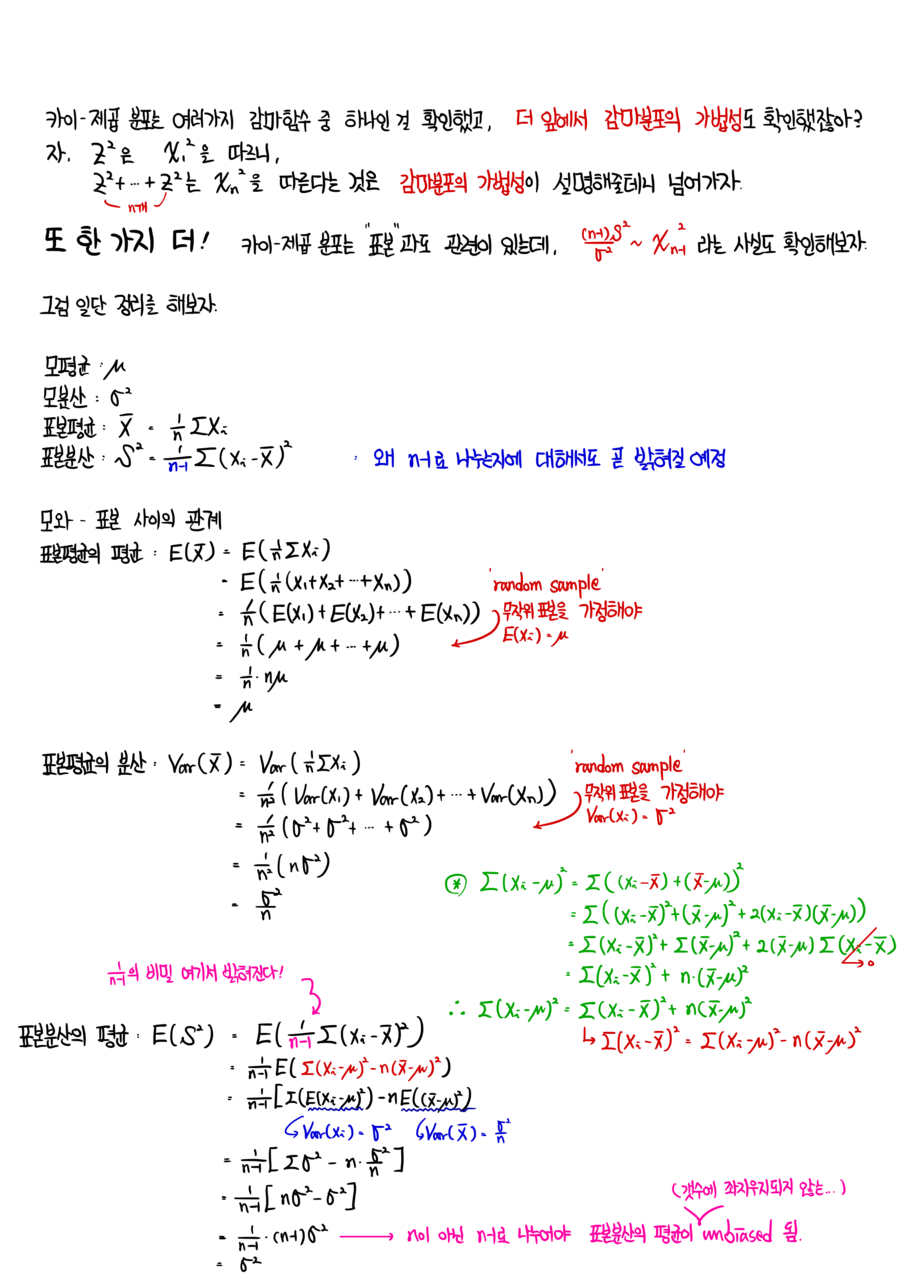 카이-제곱 분포는 여러가지 감마함수 중 하나인 걸 확인했고, 더 앞에서 감마분포의 가법성도 확인했잖아?
자. Z²은 χ₁²을 따르니,
Z²+⋯+Z²는 χₙ²을 따른다는 것은 감마분포의 가법성이 설명해줄테니 넘어가자.
n개
또 한 가지 더! 카이-제곱 분포는 "표본"과도 관련이 있는데, (n-1)S²/σ² ~ χ²ₙ₋₁ 라는 사실도 확인해보자.
그럼 일단 정리를 해보자.
모평균 : μ
모분산 : σ²
표본평균 : X̄ = 1/n ΣXᵢ
표본분산 : S² = 1/(n-1) Σ(Xᵢ-X̄)² : 왜 n-1로 나누는지에 대해서도 곧 밝혀질 예정
모와 - 표본 사이의 관계
표본평균의 평균 : E(X̄) = E(1/n ΣXᵢ)
= E(1/n (X₁+X₂+⋯+Xₙ))
= 1/n (E(X₁)+E(X₂)+⋯+E(Xₙ))
= 1/n (μ+μ+⋯+μ)
= 1/n · nμ
= μ
'random sample'
무작위 표본을 가정해야
E(Xᵢ) = μ
표본평균의 분산 : Var(X̄) = Var(1/n ΣXᵢ)
= 1/n² (Var(X₁) + Var(X₂) + ⋯ + Var(Xₙ))
= 1/n² (σ²+σ²+ ⋯ + σ²)
= 1/n² (nσ²)
= σ²/n
'random sample'
무작위 표본을 가정해야
Var(Xᵢ) = σ²
⊛ Σ(Xᵢ-μ)² = Σ((Xᵢ-X̄)+(X̄-μ))²
= Σ((Xᵢ-X̄)²+(X̄-μ)²+2(Xᵢ-X̄)(X̄-μ))
= Σ(Xᵢ-X̄)²+Σ(X̄-μ)²+2(X̄-μ)Σ(Xᵢ-X̄)
→0
= Σ(Xᵢ-X̄)² + n·(X̄-μ)²
∴ Σ(Xᵢ-μ)² = Σ(Xᵢ-X̄)²+n(X̄-μ)²
↳ Σ(Xᵢ-X̄)² = Σ(Xᵢ-μ)²-n(X̄-μ)²
1/(n-1)의 비밀 여기서 밝혀진다!
표본분산의 평균 : E(S²) = E(1/(n-1) Σ(Xᵢ-X̄)²)
= 1/(n-1) E(Σ(Xᵢ-μ)²-n(X̄-μ)²)
= 1/(n-1) [Σ(E(Xᵢ-μ)²)-nE((X̄-μ)²)
Var(Xᵢ) = σ² Var(X̄) = σ²/n
= 1/(n-1) [Σσ² - n·σ²/n]
= 1/(n-1) [nσ²-σ²]
(갯수에 좌지우지되지 않는...)
= 1/(n-1) ·(n-1)σ² → n이 아닌 n-1로 나누어야 표본분산의 평균이 unbiased 됨.
= σ²